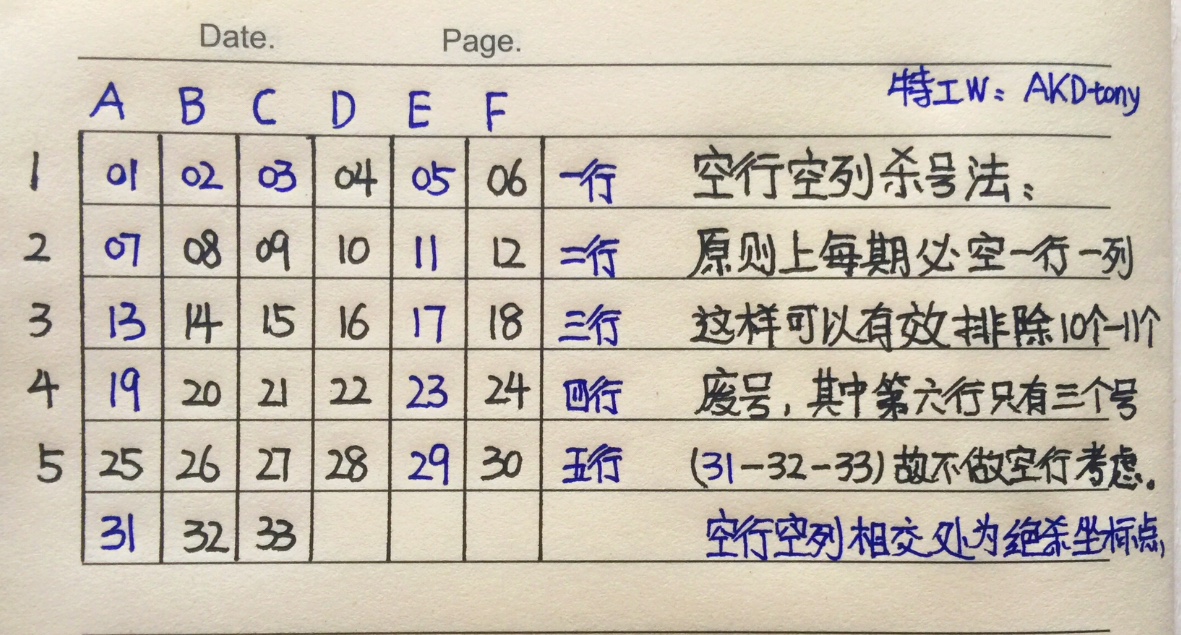 Date. Page.
特工W: AKD-tony
A B C D E F
1 01 02 03 04 05 06 一行 空行空列杀号法:
2 07 08 09 10 11 12 二行 原则上每期必空一行一列
3 13 14 15 16 17 18 三行 这样可以有效排除10个-11个
4 19 20 21 22 23 24 四行 废号,其中第六行只有三个号
5 25 26 27 28 29 30 五行 (31-32-33)故不做空行考虑。
31 32 33 空行空列相交处为绝杀坐标点,